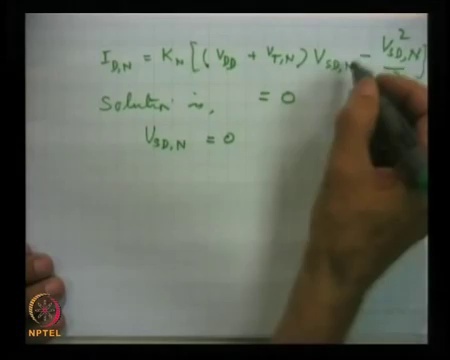 I_D,N = K_N [(V_DD + V_T,N) V_SD,N - V²_SD,N / 2]
Solution is, = 0
V_SD,N = 0
NPTEL